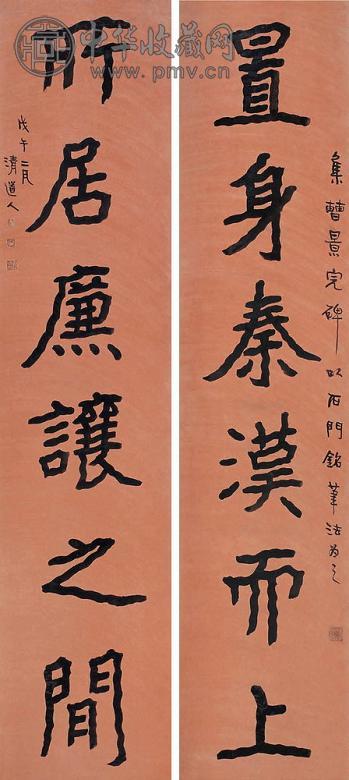 置身秦漢而上
集曹景完碑以石門銘筆法為之
所居廉讓之間
戊午二月
清道人
中华收藏网
www.pmv.cn